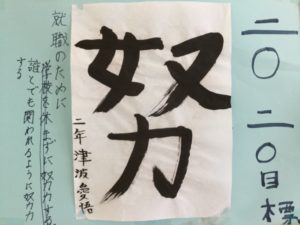 二〇二〇目標
努力
二年 津波愛悟
就職のために
学校を休まずに努力する
誰とでも関われるように努力
する